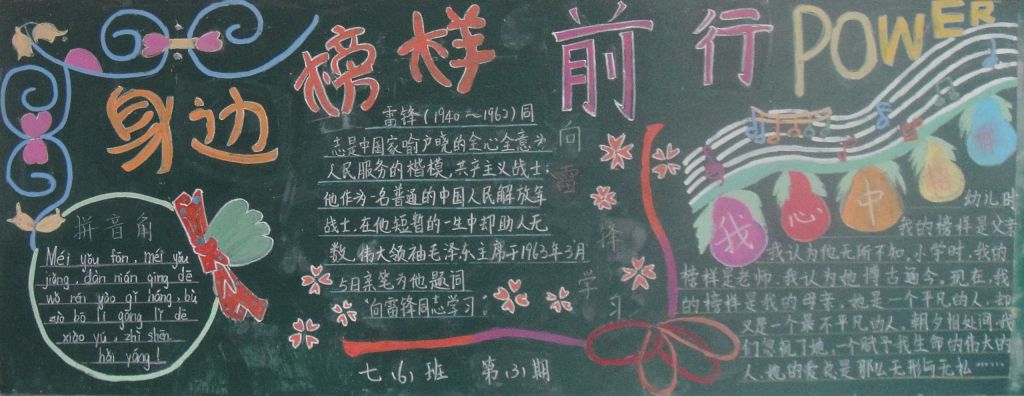 身边榜样前行POWER
拼音角
Méi yǒu fān, méi yǒu
jiǎng, dàn nián qīng dē
wǒ rán yào qǐ háng, bù
zuò bō lí gāng lǐ dē
xiǎo yú, zhǐ shēn
hǎi yáng!
雷锋(1940~1962)同
志是中国家喻户晓的全心全意为
人民服务的楷模,共产主义战士,
他作为一名普通的中国人民解放军
战士,在他短暂的一生中却助人无
数,伟大领袖毛泽东主席于1963年3月
5日亲笔为他题词
"向雷锋同志学习"
七、(6)班 第(3)期
向雷锋学习
我心中榜样
幼儿时
我的榜样是父亲
我认为他无所不知,小学时,我的
榜样是老师,我认为他博古通今。现在,我
的榜样是我的母亲,她是一个平凡的人,却
又是一个最不平凡的人。朝夕相处间,我
们忽视了她,一个赋予我生命的伟大的
人,她的爱总是那么无形与无私……